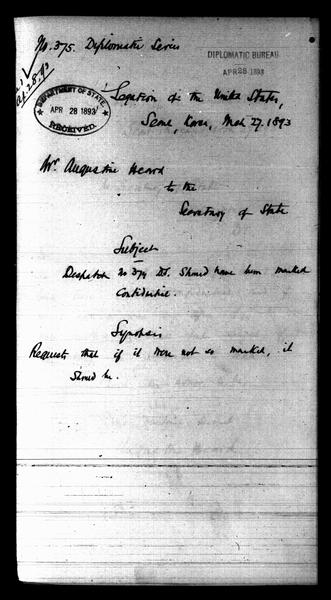 No. 375. Diplomatic Series
DIPLOMATIC BUREAU
APR 28 1893
Ap. 28. 93
DEPARTMENT OF STATE
APR 28 1893
RECEIVED
Legation of the United States,
Seoul, Korea, Mch 27. 1893
Mr. Augustine Heard
to the
Secretary of State
Subject
Despatch No 374 D.S. should have been marked
Confidential.
Synopsis
Requests that if it were not so marked, it
should be.